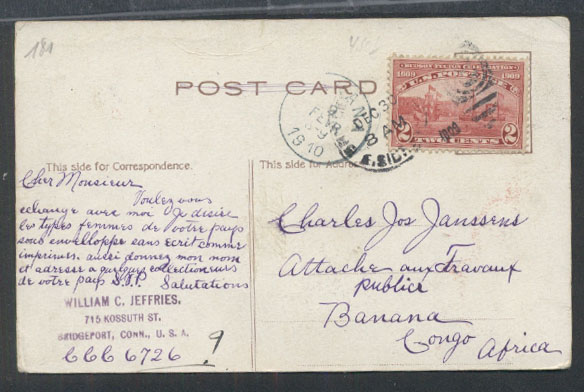 181
POST CARD
HUDSON-FULTON CELEBRATION
1609 1909
U.S. POSTAGE
2 TWO CENTS 2
DEC 30
8 AM
1909
BANANA
9
FEVR
1910
This side for Correspondence.
This side for Address
Cher Monsieur
Voulez vous
echange avec moi Je desire
les types femmes de votre pays
sous enveloppe sans ecrit comme
imprimes. aussi donnez mon nom
et adresse a quelques collectionneurs
de votre pays S.V.P. Salutations
WILLIAM C. JEFFRIES.
715 KOSSUTH ST.
BRIDGEPORT, CONN., U. S. A.
CCC 6726 9
Charles Jos Janssens
Attache aux Travaux
publice
Banana
Congo
Africa